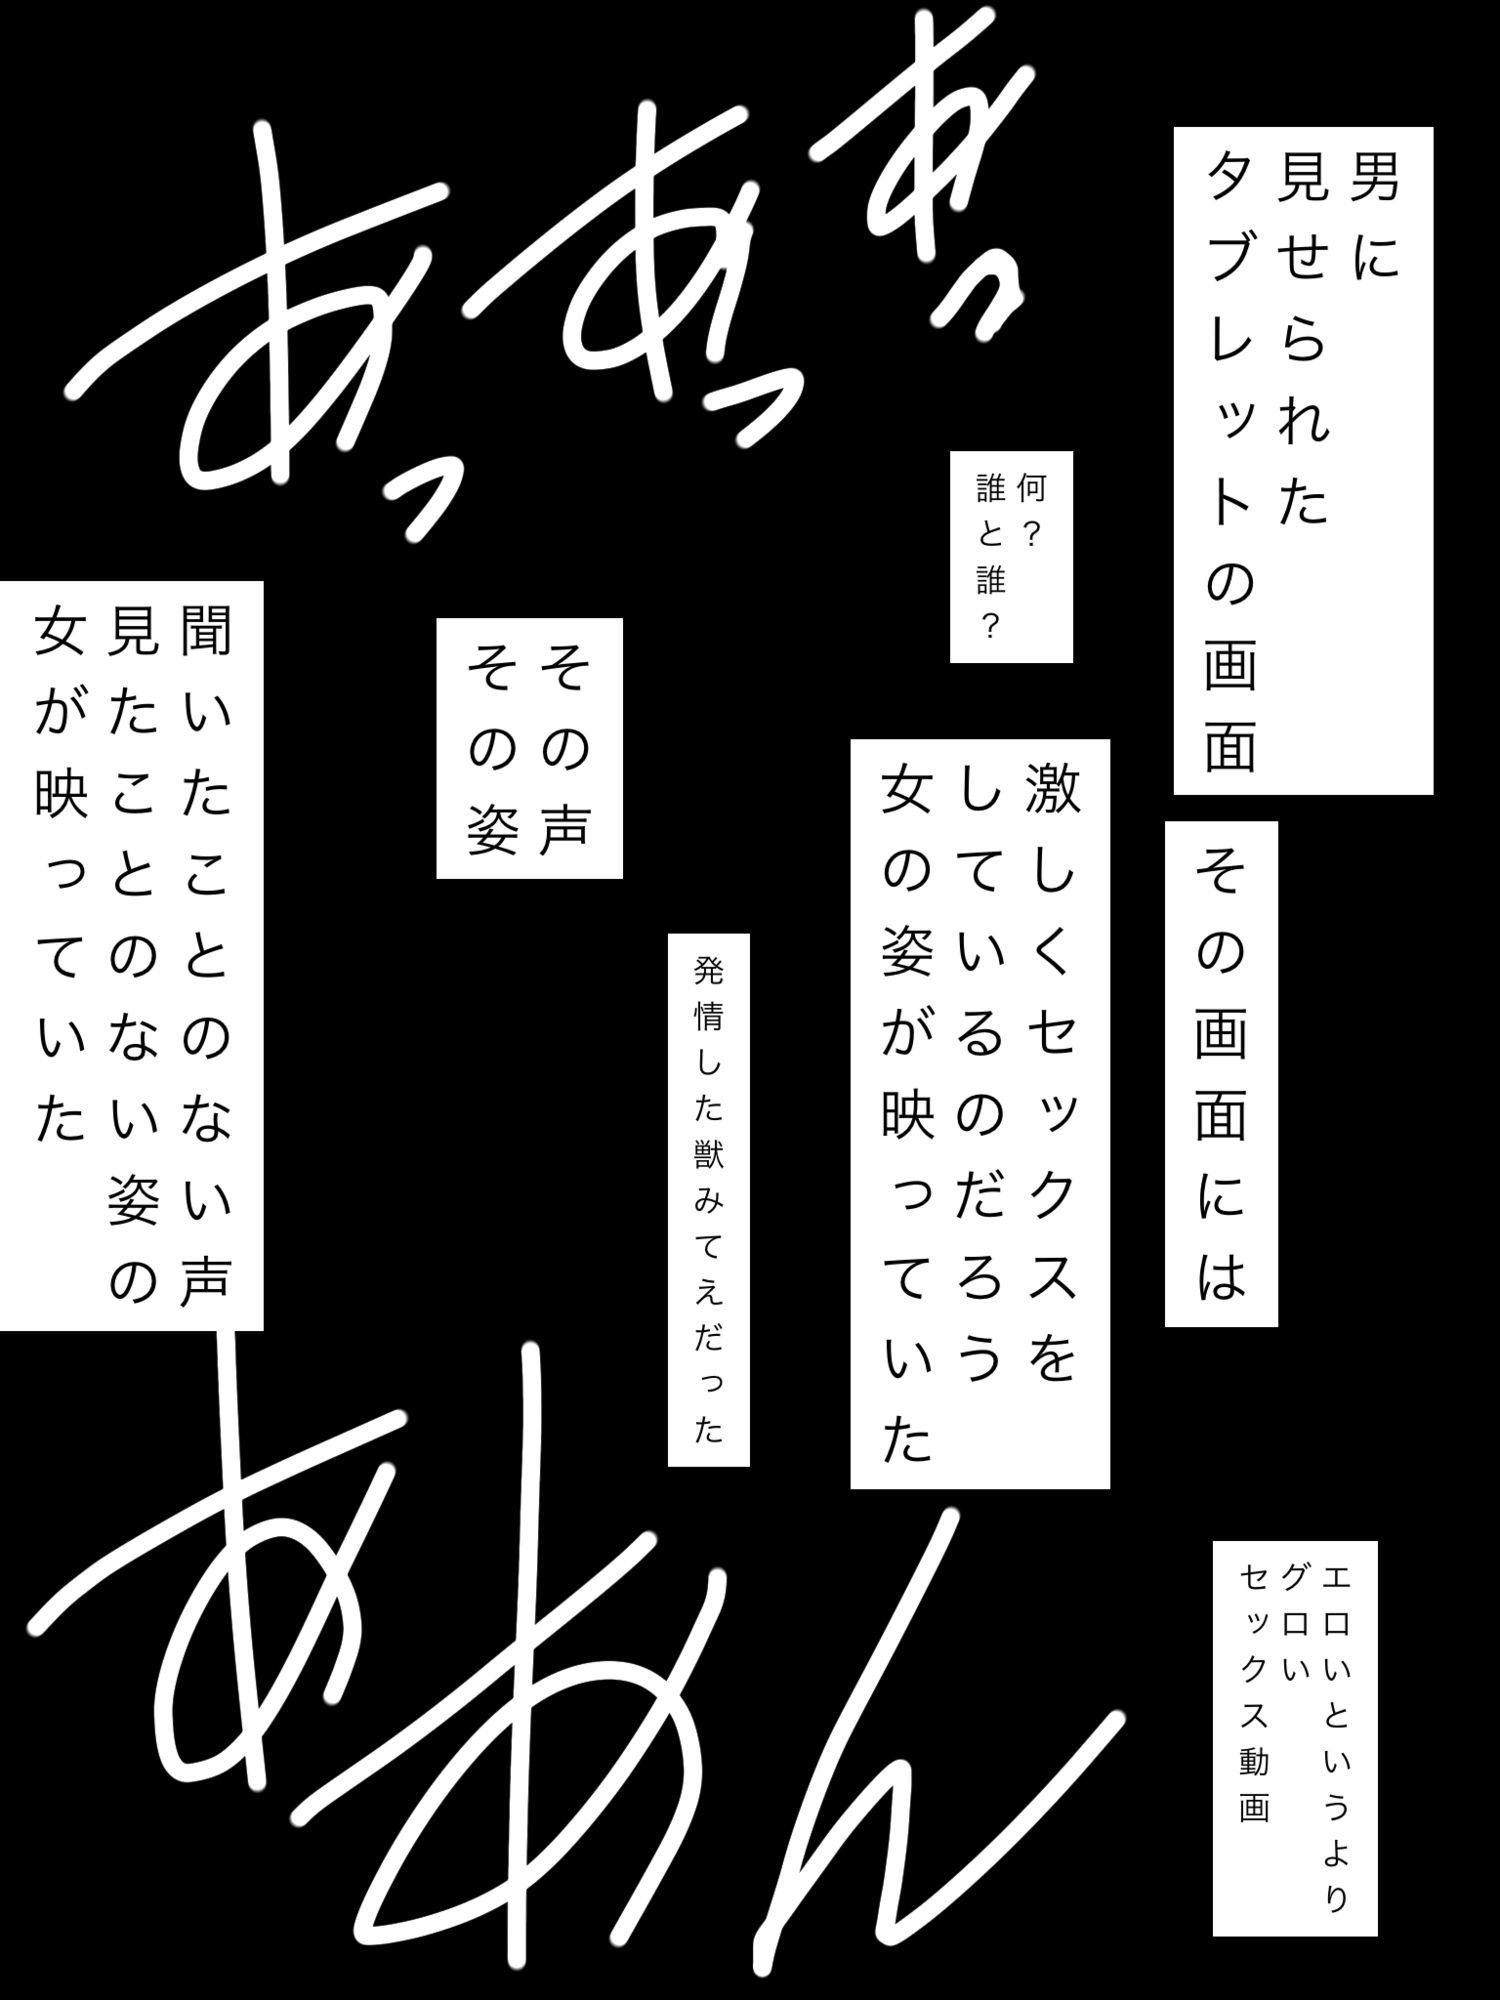 男に
見せられた
タブレットの画面
あっ
あっ
あっ
何？
誰と誰？
その画面には
激しくセックスを
しているのだろう
女の姿が映っていた
その声
その姿
発情した獣みてえだった
聞いたことのない声
見たことのない姿の
女が映っていた
エロいというより
グロい
セックス動画
ああん